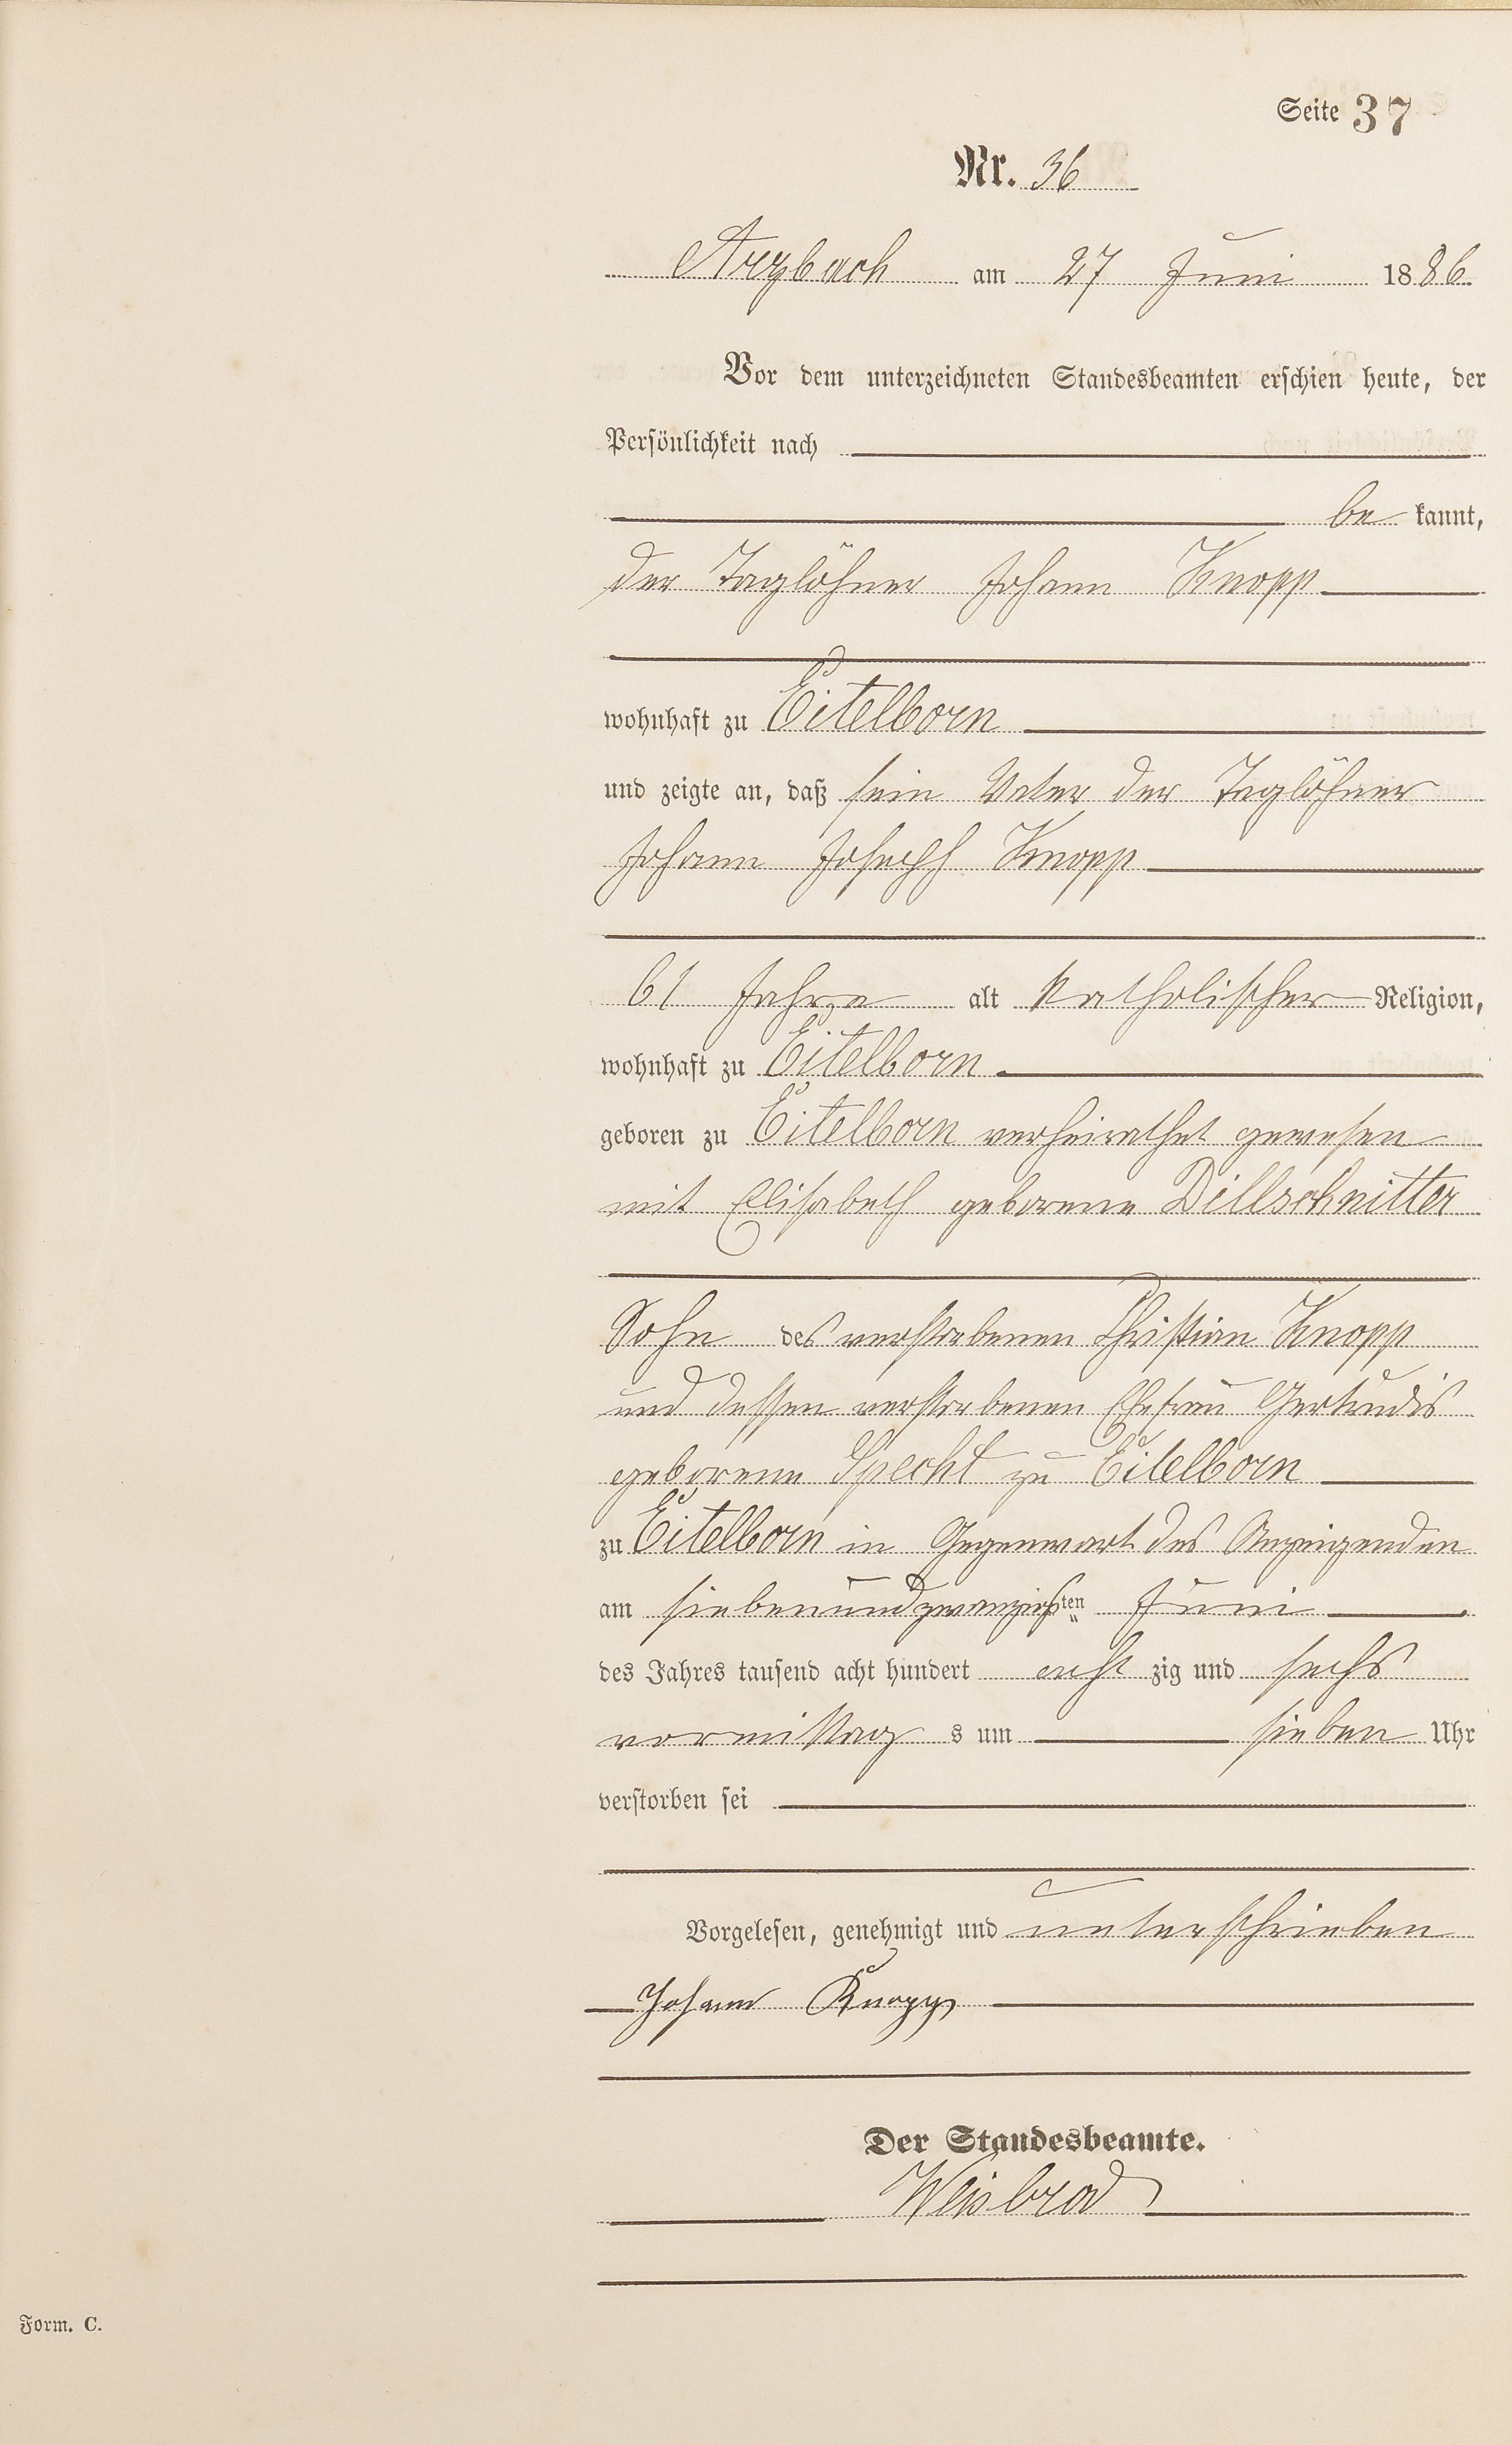 Seite 37
Nr. 36
Arzbach am 27 Juni 1886
Vor dem unterzeichneten Standesbeamten erschien heute, der
Persönlichkeit nach
be kannt,
der Taglöhner Johann Knopp
wohnhaft zu Eitelborn
und zeigte an, daß sein Vater der Taglöhner
Johann Joseph Knopp
61 Jahre alt katholischer Religion,
wohnhaft zu Eitelborn
geboren zu Eitelborn verheirathet gewesen
mit Elisabeth geborene Dillschnitter
Sohn des verstorbenen Christian Knopp
und dessen verstorbenen Ehefrau Gertrudis
geborene Specht zu Eitelborn
zu Eitelborn in Gegenwart des Anzeigenden
am siebenundzwanzigsten Juni
des Jahres tausend acht hundert acht zig und sechs
vormittag s um sieben Uhr
verstorben sei
Vorgelesen, genehmigt und unterschrieben
Johann Knopp
Der Standesbeamte.
Weisbrod
Form. C.